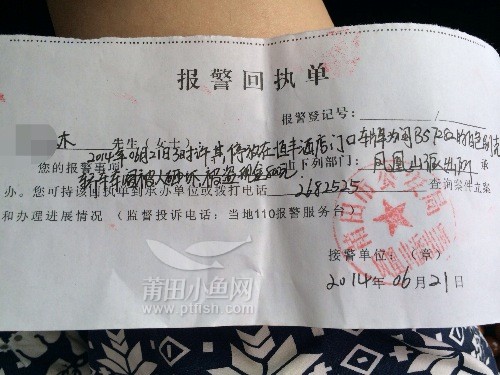 报警回执单
报警登记号：/
先生（女士）
2014年06月21日3时许其停放在恒丰酒店门口车牌为闽BS7282的白色
您的报警事项 由下列部门：凤凰山派出所 承
车窗被人砸坏，被盗现金800元
办。您可持该回执单到承办单位或拨打电话 2682525 查询案件立案
和办理进展情况（监督投诉电话：当地110报警服务台）
接警单位：（章）
2014年06月21日
莆田小鱼网
www.ptfish.com